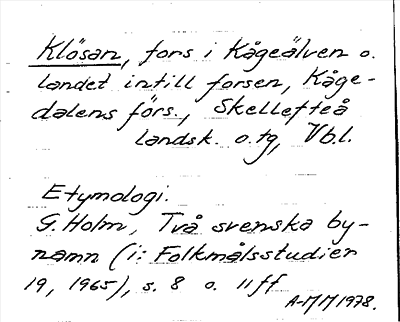 Klösan, fors i Kågeälven o.
landet intill forsen, Kåge-
dalens förs., Skellefteå
landsk. o. tg, Vb.l.
Etymologi.
G. Holm, Två svenska by-
namn (i: Folkmålsstudier
19, 1965), s. 8 o. 11 ff
A-MM 1978.